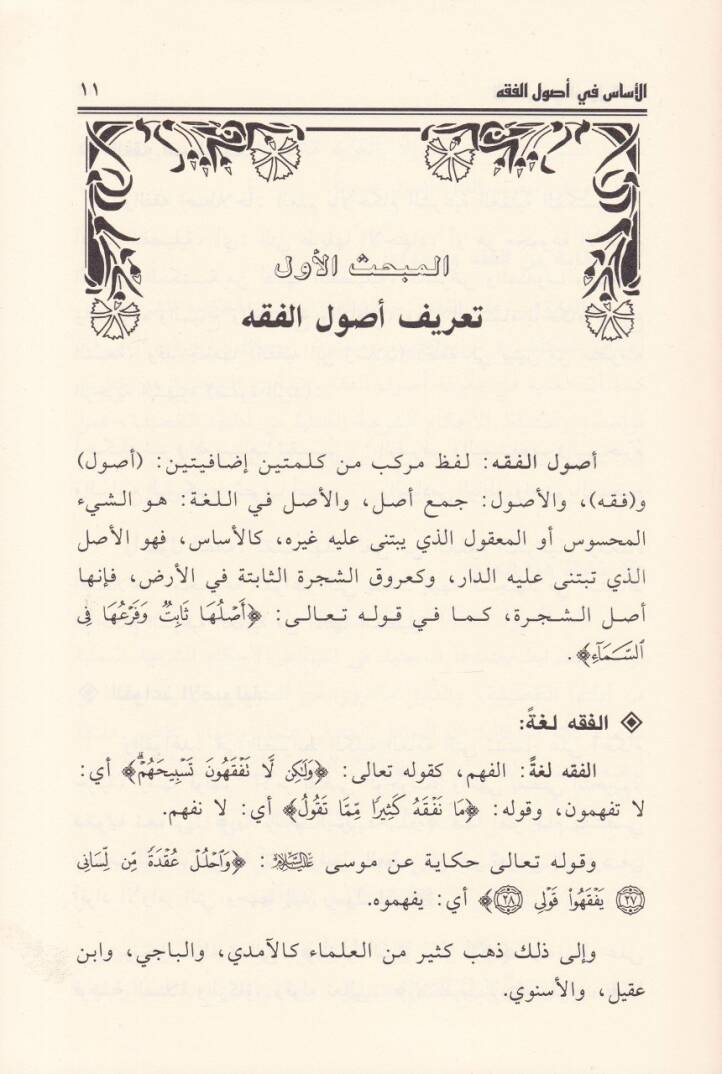 الأساس في أصول الفقه ١١
المبحث الأول
تعريف أصول الفقه
أصول الفقه: لفظ مركب من كلمتين إضافيتين: (أصول)
و(فقه)، والأصول: جمع أصل، والأصل في اللغة: هو الشيء
المحسوس أو المعقول الذي يبتنى عليه غيره، كالأساس، فهو الأصل
الذي تبتنى عليه الدار، وكعروق الشجرة الثابتة في الأرض، فإنها
أصل الشجرة، كما في قوله تعالى: ﴿أَصْلُهَا ثَابِتٌ وَفَرْعُهَا فِي
ٱلسَّمَآءِ﴾.
◈ الفقه لغةً:
الفقه لغةً: الفهم، كقوله تعالى: ﴿وَلَٰكِن لَّا تَفْقَهُونَ تَسْبِيحَهُمْۗ﴾ أي:
لا تفهمون، وقوله: ﴿مَا نَفْقَهُ كَثِيرًا مِّمَّا تَقُولُ﴾ أي: لا نفهم.
وقوله تعالى حكاية عن موسى عَلَيْهِ السَّلَامُ: ﴿وَٱحْلُلْ عُقْدَةً مِّن لِّسَانِي
٢٧ يَفْقَهُوا۟ قَوْلِي ٢٨﴾ أي: يفهموه.
وإلى ذلك ذهب كثير من العلماء كالآمدي، والباجي، وابن
عقيل، والأسنوي.